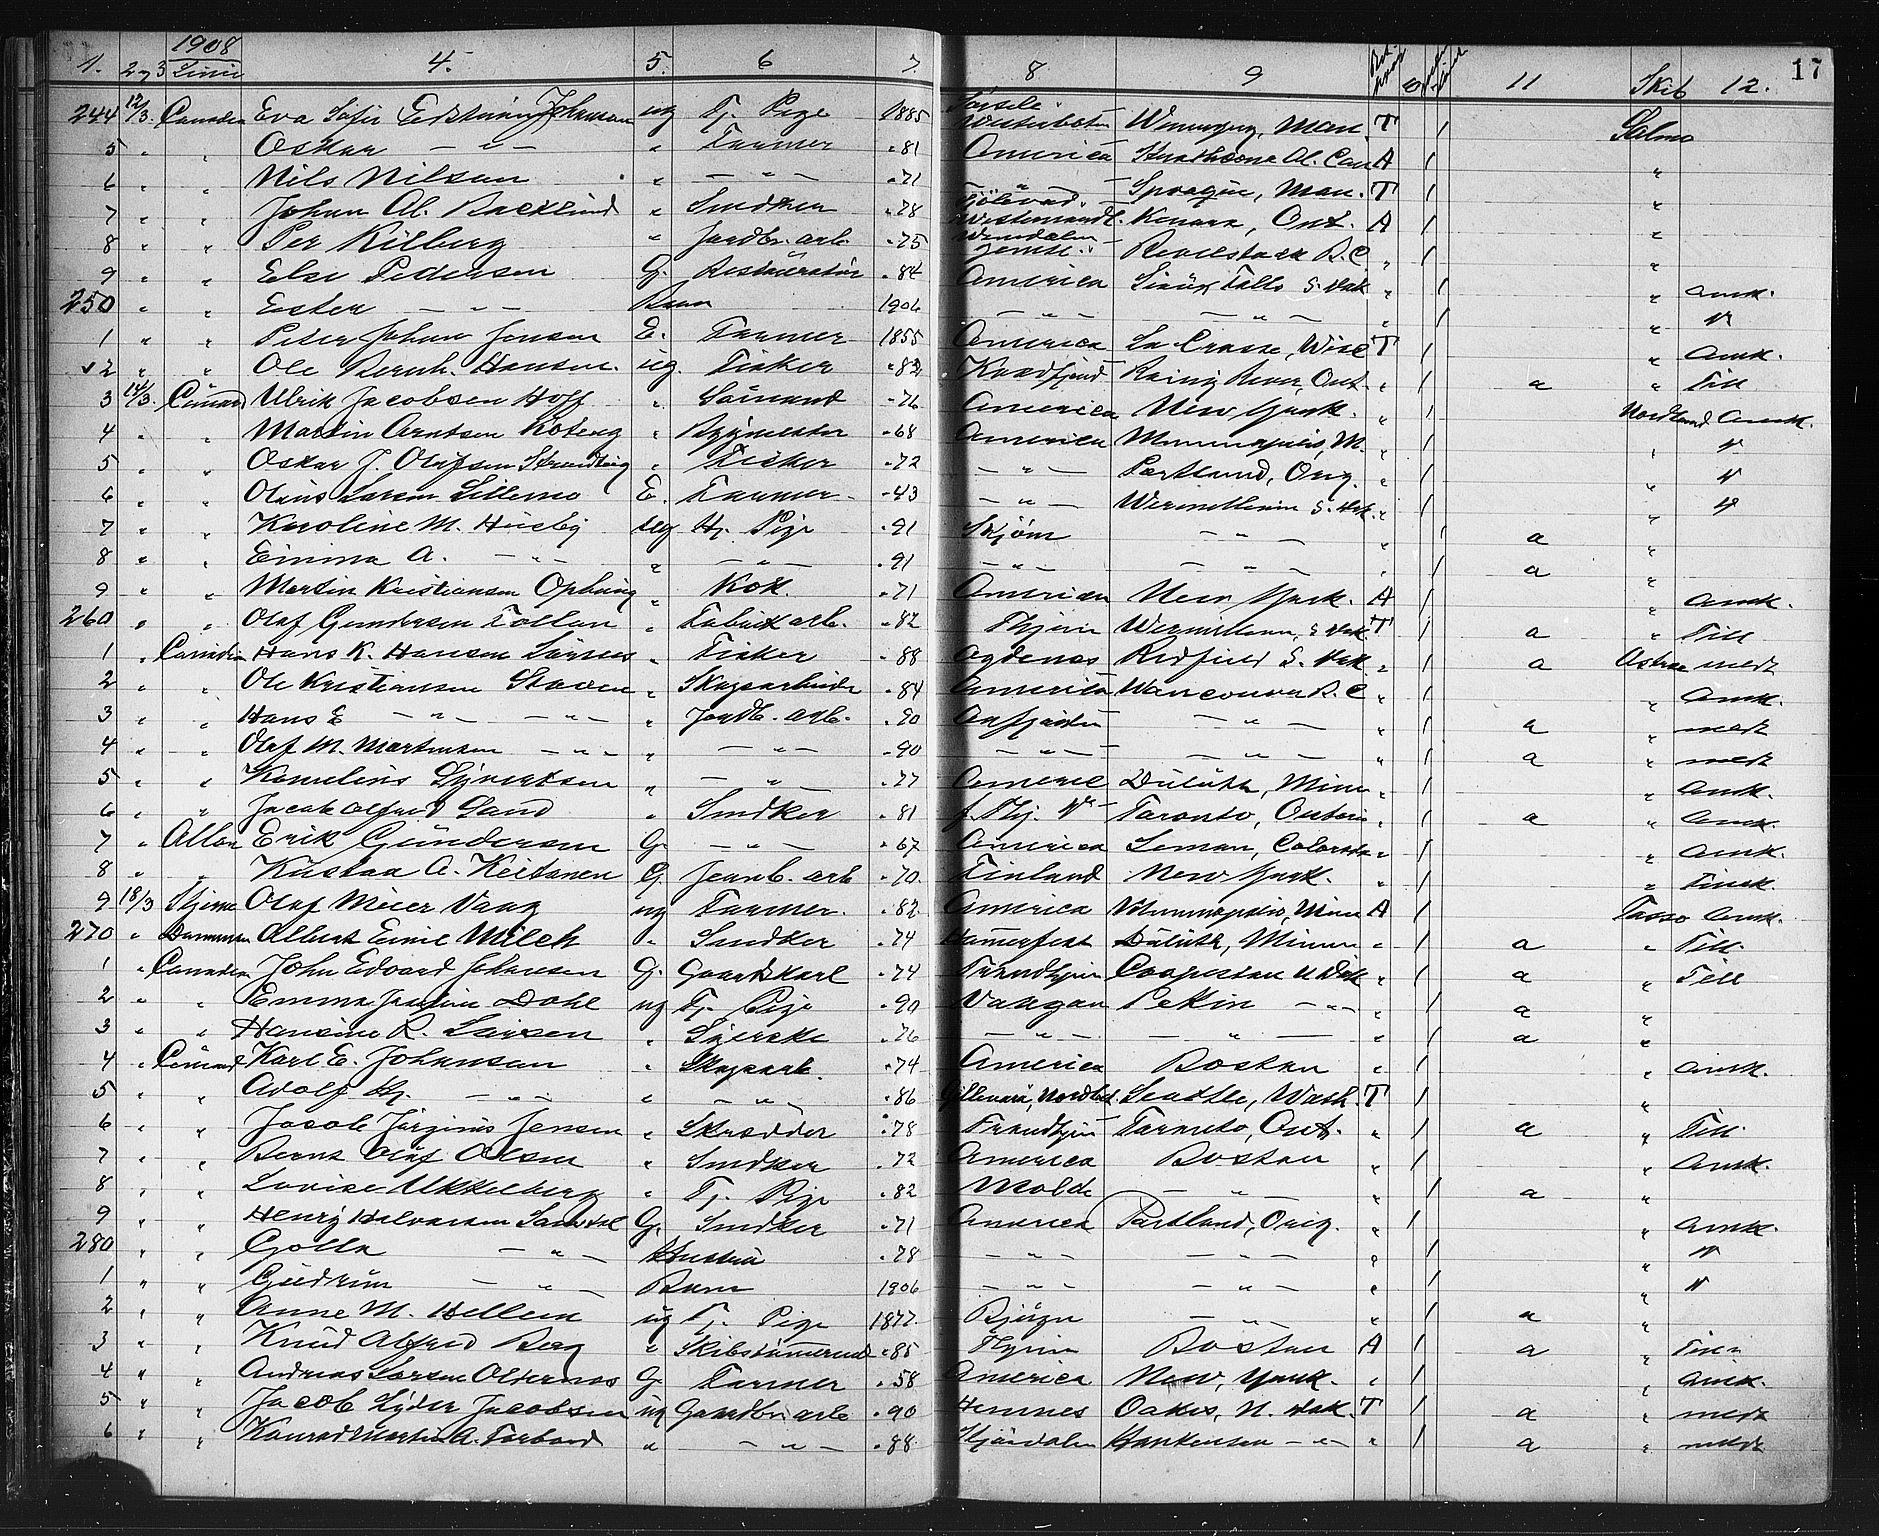 1. 2 og 3 1908 Linie 4. 5. 6 7. 8 9 11 Skib 12. 17
244 12/3. Canadian Eva Sofie Johnsson ug Tj. Pige 1885 Sorsele Westerbotn Winnipeg, Man. T / Salmo
5 " " Oskar — " — " Farmer "81 America Al. Can A / "
6 " " Nils Nilsen " — " — "71 — " — Man. T / "
7 " " Johan Al. Backlund " Snedker "78 Kenora, Ont. A / "
8 " " Per Kilberg " Jordbr. arb. "75 Revelstock B.C. " / "
9 " " Else Pedersen G. Restauratør "84 America Sioux Falls S. Dak " / " Amk.
250 " " Ester — " — Barn 1906 — " — — " — " / " "
1 " " Peter Johan Jensen E. Farmer 1855 America La Crosse, Wisc T / " Amk.
v2 " " Ole Bernh. Hansen. ug. Fisker "82 Kvadfjord Rainy River, Ont. " / a " Till
3 14/3. Cunard Ulrik Jacobsen Hoff " Sømand "76 America New York. " / Nordland Amk.
4 " " Martin Arntsen Roberg " Bygmester "68 America Minneapolis, M. " / " "
5 " " Oskar J. Olufsen " Fisker "72 — " — Portland, Oreg. " / " "
6 " " Olaus Larsen Lillemo E. Farmer "43 — " — Wermillion S. Dak. " / " "
7 " " Karoline M. Huseby ug Hj. Pige "91 Skjørn — " — " / a "
8 " " Emma A. — " — " — " — "91 — " — — " — " / a "
9 " " Martin Kristiansen Ophaug " Kok. "71 American New York. A / " Amk.
260 " " Olaf Gundersen Follan " Fabrik arb. "82 Thjem Wermillion, S Dak T / a " Till
1 " Canadian Hans K. Hansen " Fisker "88 Agdenes Redfield S. Dak " / a Astrea medt
2 " " Ole Kristiansen Staven " Skogsarbeider "84 America Wancouver B.C " / " Amk.
3 " " Hans E — " — — " — " Jordb. arb. "90 — " — " / a " medt
4 " " Olaf M. Martinsen — " — " — " — "90 — " — — " — " / a " medt
5 " " Kornelius Syvertsen " — " "77 Americ Duluth, Minn " / " Amk.
6 " " Jacob Alfred Sand " Snedker "81 f. Thj. Toronto, Ontario " / a " Amk.
7 " Allan Erik Gundersen G. — " — "67 America Leman, Colorado " / " Amk.
8 " " Kustaa A. Keitanen G. Jernb. arb "70. Finland New York. " / " Finsk.
9 18/3 Stjerne Olaf Meier Vaag ug Farmer. "82 America Minneapolis, Minn A / Tasso Amk.
270 " Danmark Albert Emil Milch " Snedker "74 Hammerfest Duluth, Minn " / a " Till
1 " Canadian John Edvard Johansen G. Gaardskarl "74 Trondhjem Cooperstown N Dak " / a " Till
2 " " Emma Dahl ug Tj. Pige "90 Vaagan Pekin — " — " / a "
3 " " Hansine R. Larsen " Syerske "76 — " — — " — " / a "
4 " Cunard Karl E. Johansen " Skogsarb. "74 America Boston " / " Amk.
5 " " Adolf Hj. — " — " — " — "86 Gillevara, Seattle, Wash. T / "
6 " " Jacob Jørginus Jensen " Skredder "78 Trondhjem Toronto, Ont. " / a " Till
7 " " Bernt Olaf Olsen " Snedker "72 America Boston " / " Amk.
8 " " Lovise Ukkelberg " Tj. Pige "82 Molde — " — " / a "
9 " " Henry Halvorsen G. Snedker "71 America Portland, Oreg. " / " Amk.
280 " " Golla — " — Hustru "78 — " — — " — " / " "
1 " " Gudrun — " — Barn 1906 — " — — " — " / " "
2 " " Anne M. Hellem ug Tj. Pige 1877. Bjugn — " — " / a "
3 " " Knud Alfred Berg " Skibstømmermd "85 Thjem Boston A / a "
4 " " Andreas Larsen G. Farmer "58 America New, York. " / " Amk.
5 " " Jacob Lyder Jacobsen ug Gaardbr. arb "90 Hemnes Oakes, N. Dak. T / a " medt
6 " " Konrad Martin A. Forbord " — " — "88 Stjørdalen Hankinson — " — " / a " medt